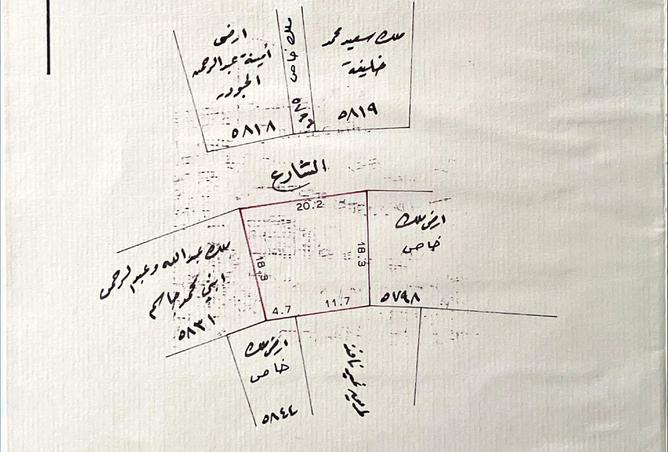 ارضي
أمينة عبدالرحمن
الجودر
٥٨١٨
ملك خاص
ملك سعيد محمد
خليفة
٥٨١٩
الشارع
20.2
18.3
18.3
4.7
11.7
ملك عبدالله وعبدالرحمن
ابني محمد جاسم
٥٨٣١
ارض ملك
خاص
٥٧٩٨
ارض ملك
خاص
٥٨٤٤
طريق غير نافذ